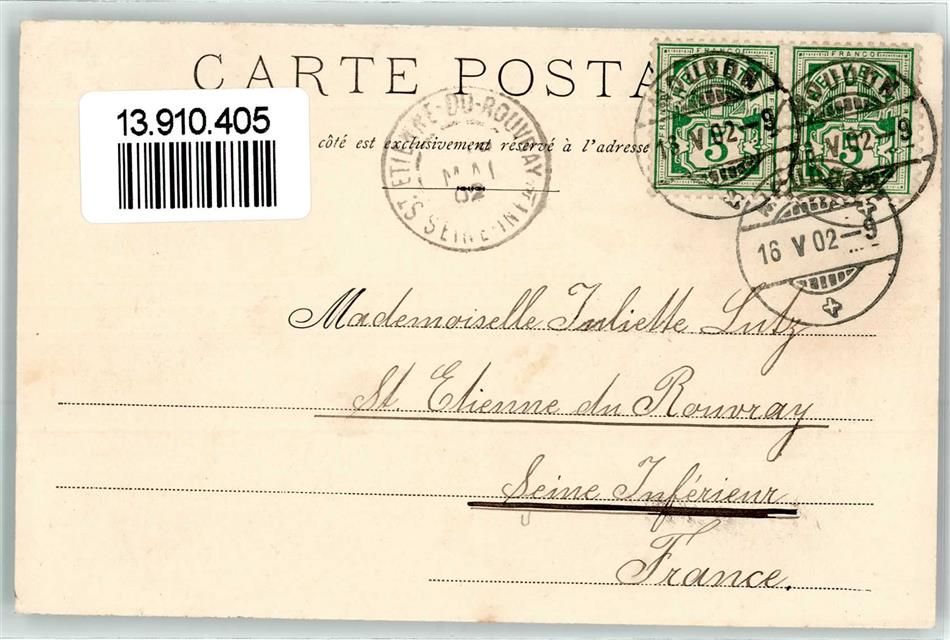 CARTE POSTA
13.910.405
côté est exclusivement réservé à l'adresse
ST ETIENNE-DU-ROUVRAY
SEINE-INF
MAI
02
FRANCO
FRANCO
5
5
V 02
9
V 02
9
16 V 02—9
Mademoiselle Juliette Lutz
St. Etienne du Rouvray
Seine Inférieur
France.